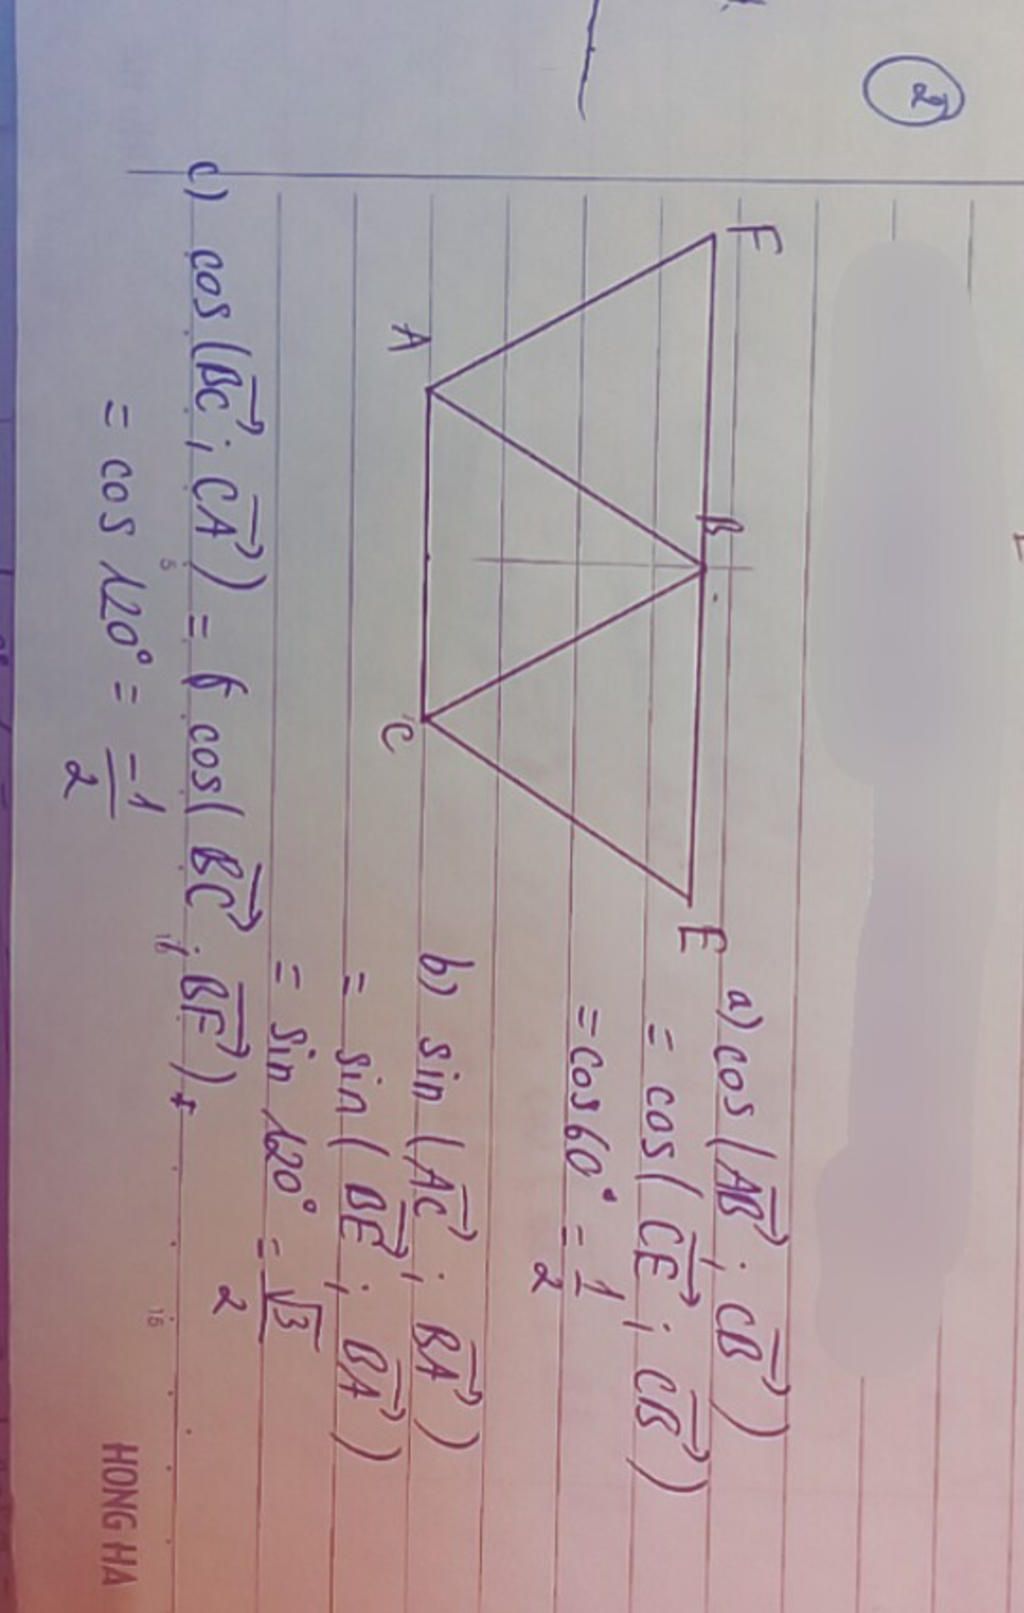 2,
F
B
E
A
C
a) cos(AB⃗ ; CB⃗)
= cos(CE⃗ ; CB⃗)
= cos60° = 1/2
b) sin(AC⃗ ; BA⃗)
= sin(BE⃗ ; BA⃗)
= sin 120° = √3/2
c) cos(BC⃗ ; CA⃗) = cos(BC⃗ ; BF⃗)
= cos 120° = -1/2
5
10
15
HONG HA